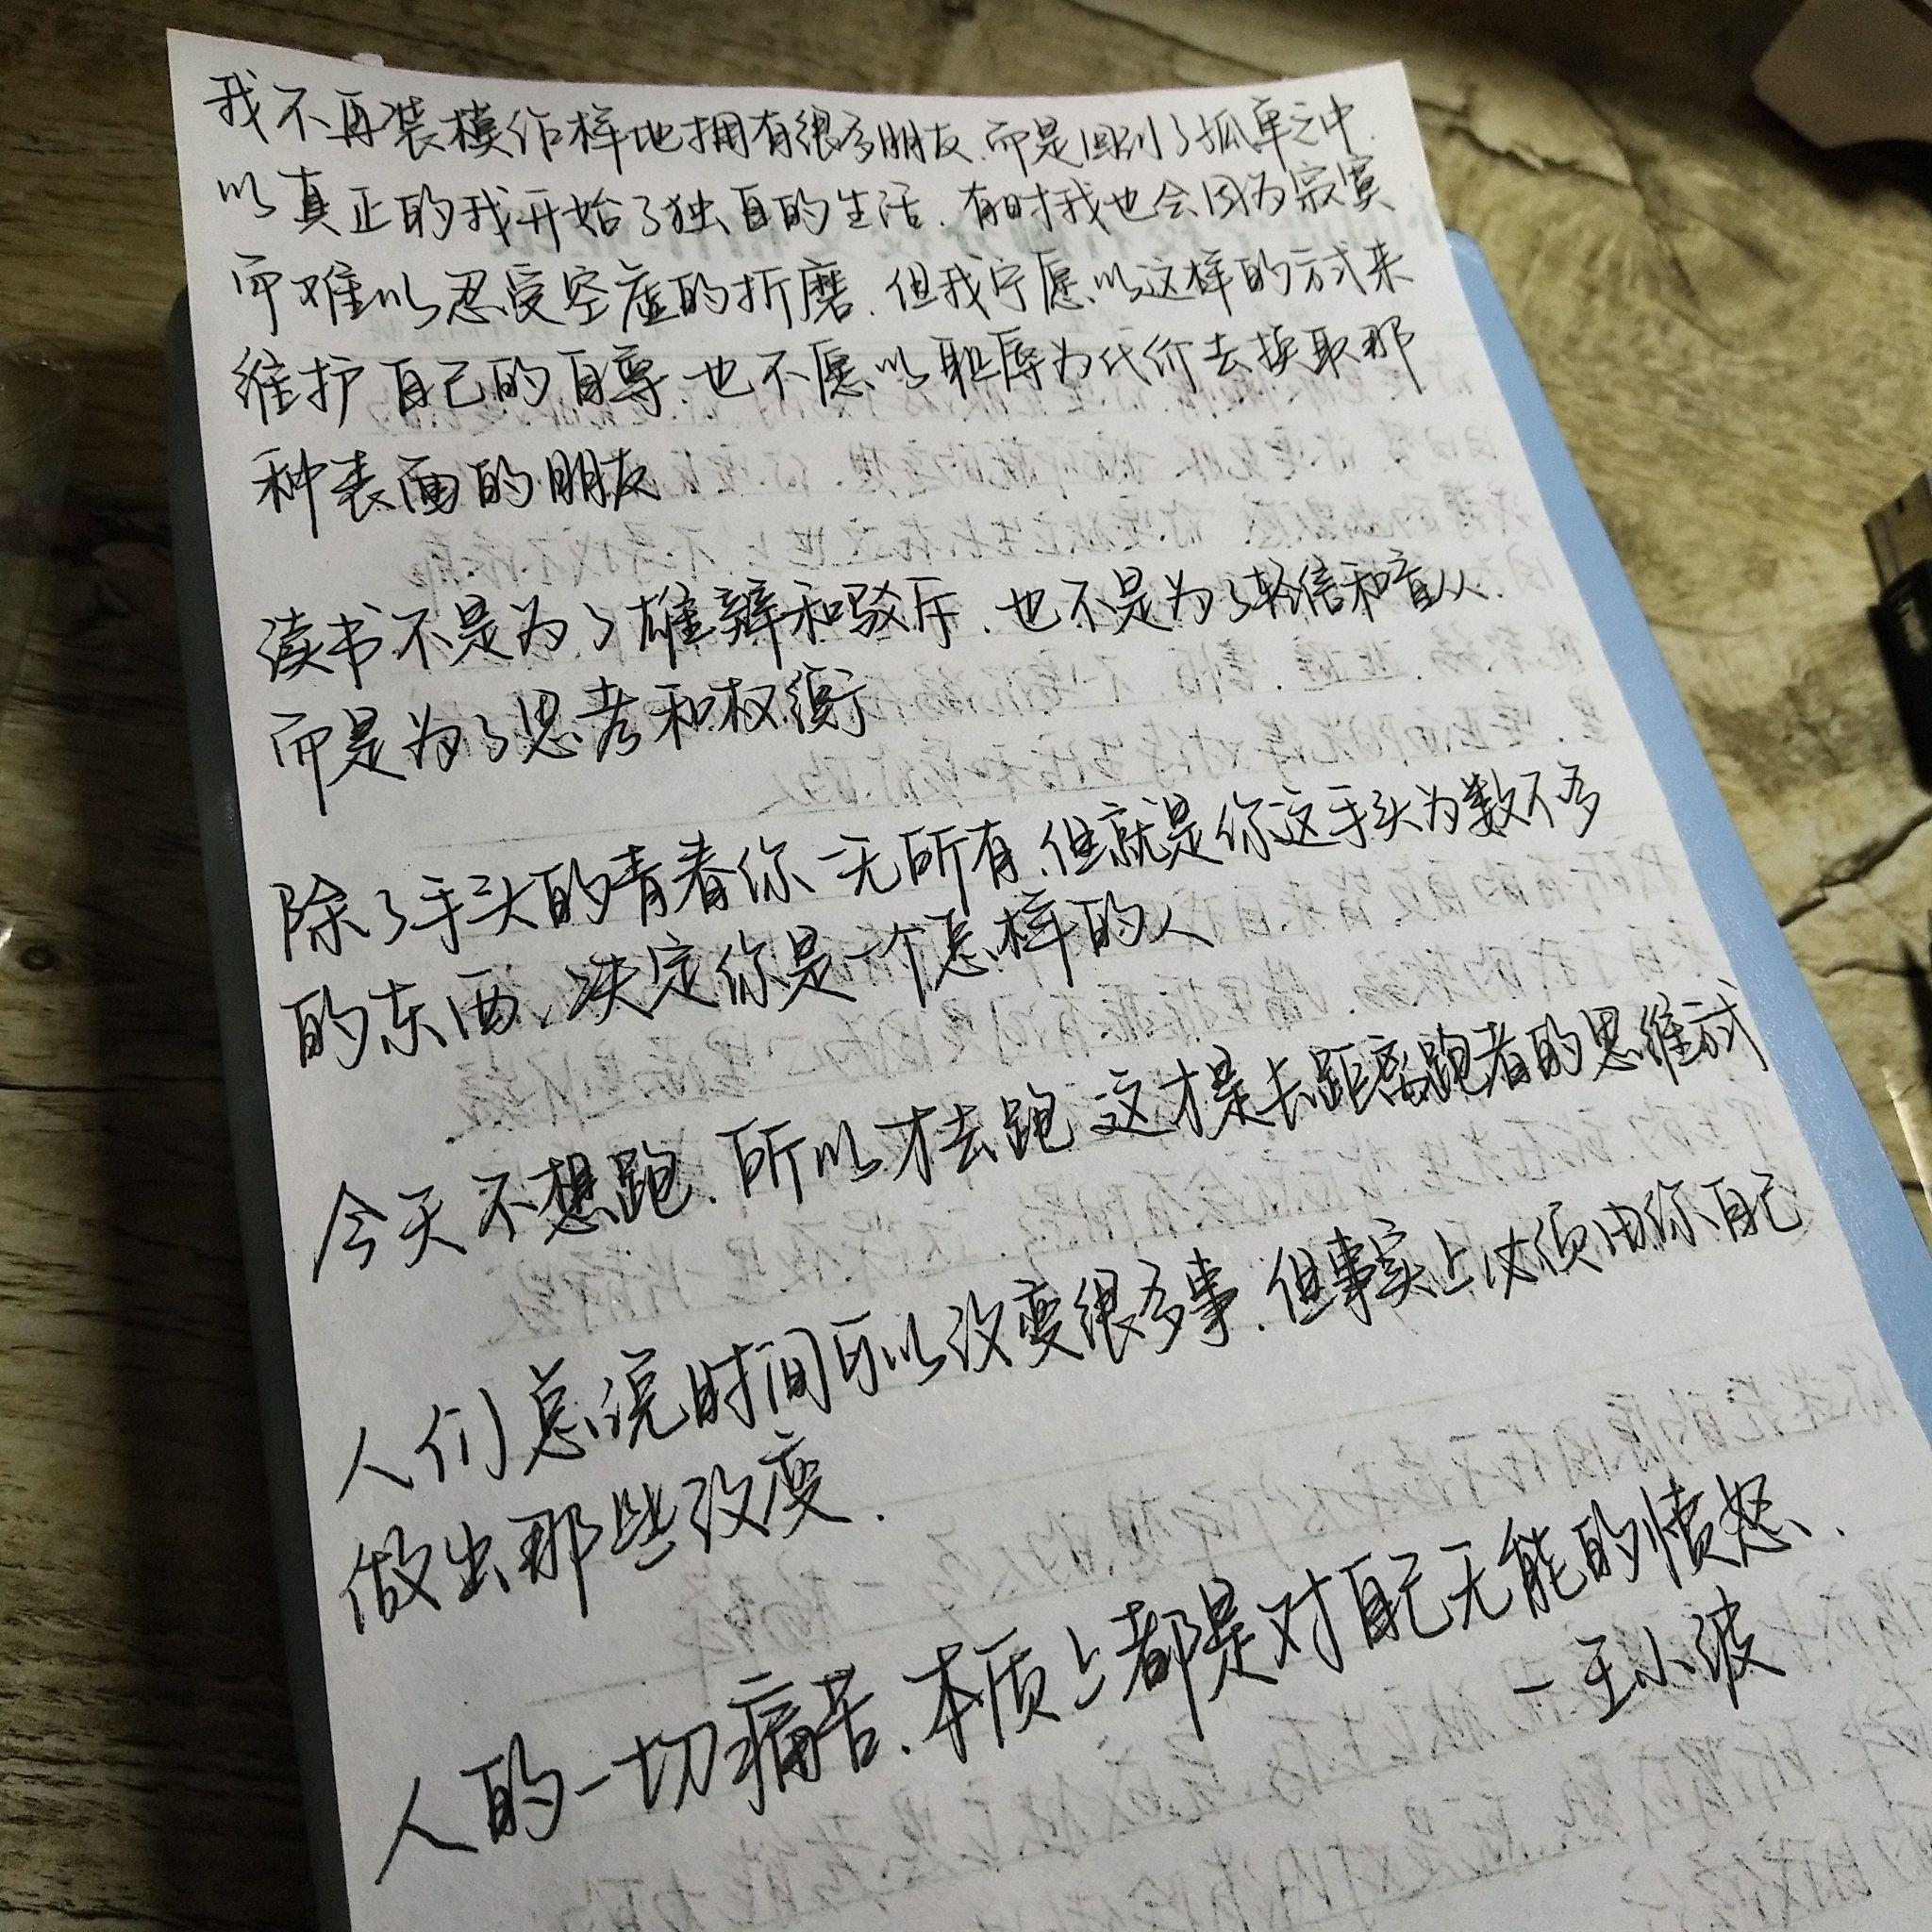 我不再装模作样地拥有很多朋友、而是回到了孤单之中.
以真正的我开始了独自的生活.有时我也会因为寂寞
而难以忍受空虚的折磨.但我宁愿以这样的方式来
维护自己的自尊.也不愿以耻辱为代价去换取那
种表面的朋友
读书不是为了雄辩和驳斥、也不是为了轻信和盲从.
而是为了思考和权衡
除了手头的青春你一无所有、但就是你这手头为数不多
的东西、决定你是一个怎样的人
今天不想跑.所以才去跑 这才是长距离跑者的思维方式
人们总说时间可以改变很多事.但事实上必须由你自己
做出那些改变.
人的一切痛苦、本质上都是对自己无能的愤怒.
一王小波